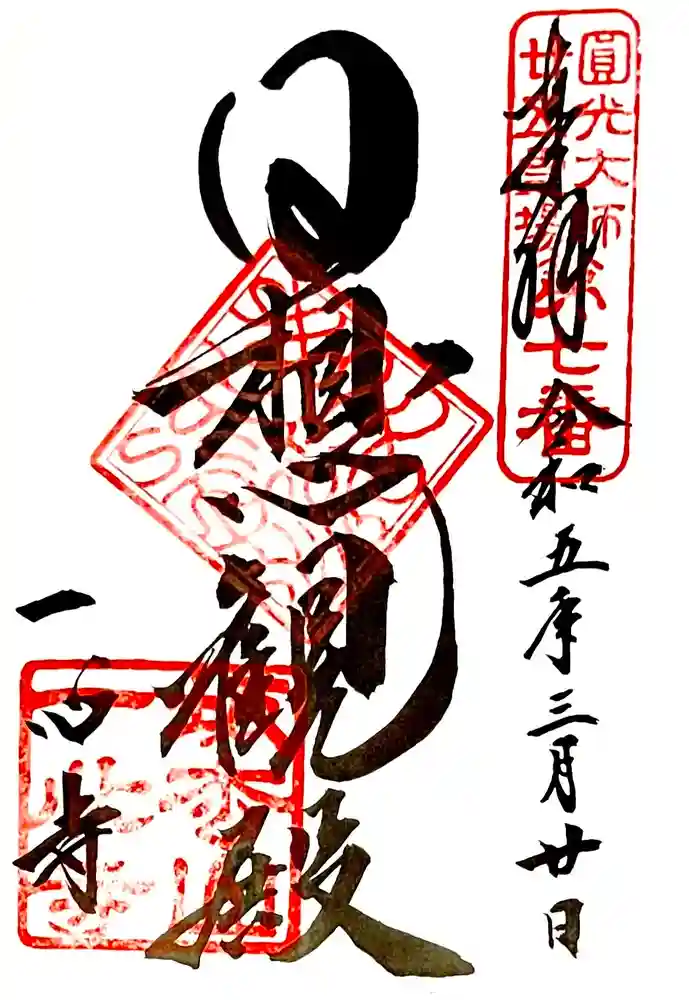 奉拝
令和五年三月廿日
圓光大師
廿五霊場第七番
日想観殿
一心寺